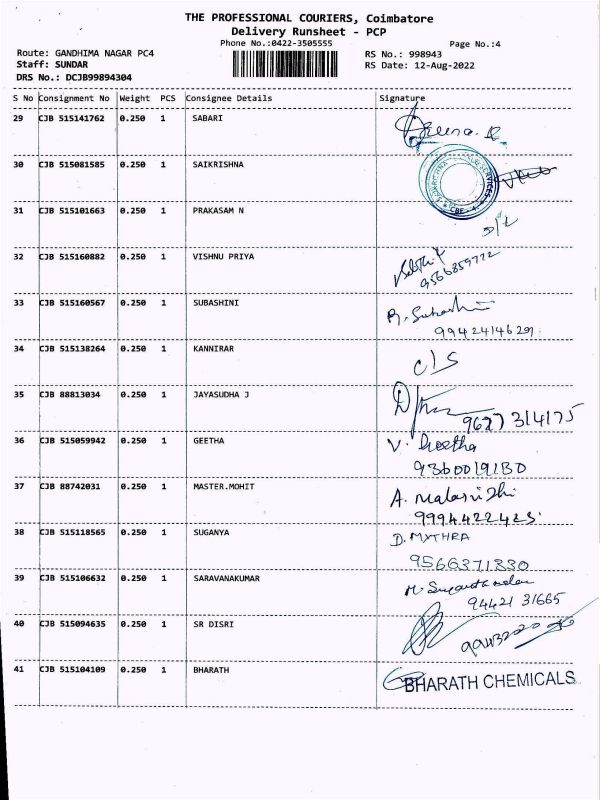 THE PROFESSIONAL COURIERS, Coimbatore
Delivery Runsheet - PCP
Phone No.:0422-3505555
Page No.:4
Route: GANDHIMA NAGAR PC4
RS No.: 998943
Staff: SUNDAR
RS Date: 12-Aug-2022
DRS No.: DCJB99894304
S No Consignment No Weight PCS Consignee Details Signature
29 CJB 515141762 0.250 1 SABARI
30 CJB 515081585 0.250 1 SAIKRISHNA
31 CJB 515101663 0.250 1 PRAKASAM N D/L
32 CJB 515160882 0.250 1 VISHNU PRIYA
9566859772
33 CJB 515160567 0.250 1 SUBASHINI R. Subashini
9942414629
34 CJB 515138264 0.250 1 KANNIRAR C/S
35 CJB 88813034 0.250 1 JAYASUDHA J
9627314175
36 CJB 515059942 0.250 1 GEETHA V. Geetha
9360019130
37 CJB 88742031 0.250 1 MASTER.MOHIT A. Malarvizhi
9994422423
38 CJB 515118565 0.250 1 SUGANYA D. MYTHRA
9566371330
39 CJB 515106632 0.250 1 SARAVANAKUMAR
94421 31665
40 CJB 515094635 0.250 1 SR DISRI
41 CJB 515104109 0.250 1 BHARATH BHARATH CHEMICALS